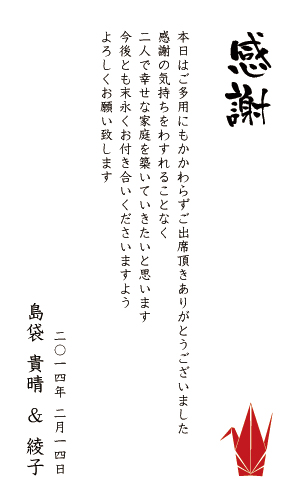 感謝
本日はご多用にもかかわらずご出席頂きありがとうございました
感謝の気持ちをわすれることなく
二人で幸せな家庭を築いていきたいと思います
今後とも末永くお付き合いくださいますよう
よろしくお願い致します
二〇一四年 二月一四日
島袋 貴晴 & 綾子